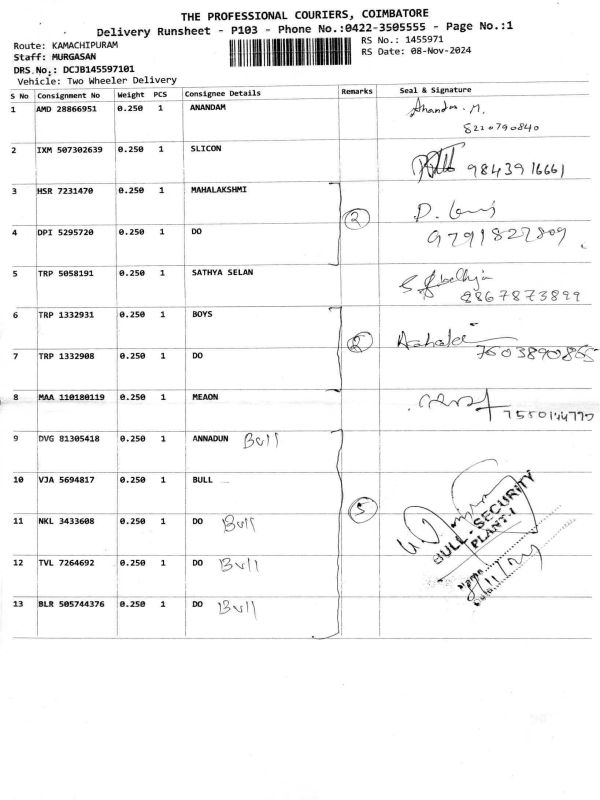 THE PROFESSIONAL COURIERS, COIMBATORE
Delivery Runsheet - P103 - Phone No.:0422-3505555 - Page No.:1
Route: KAMACHIPURAM
RS No.: 1455971
Staff: MURGASAN
RS Date: 08-Nov-2024
DRS No.: DCJB145597101
Vehicle: Two Wheeler Delivery
S No Consignment No Weight PCS Consignee Details Remarks Seal & Signature
1 AMD 28866951 0.250 1 ANANDAM Anandan. M.
8220790840
2 IXM 507302639 0.250 1 SLICON 9843916661
3 HSR 7231470 0.250 1 MAHALAKSHMI 2
4 DPI 5295720 0.250 1 DO 9791827809
5 TRP 5058191 0.250 1 SATHYA SELAN
8867873899
6 TRP 1332931 0.250 1 BOYS 2
7 TRP 1332908 0.250 1 DO 7603890865
8 MAA 110180119 0.250 1 MEAON
9 DVG 81305418 0.250 1 ANNADUN Bull
10 VJA 5694817 0.250 1 BULL 5
11 NKL 3433608 0.250 1 DO Bull
12 TVL 7264692 0.250 1 DO Bull
13 BLR 505744376 0.250 1 DO Bull
BULL - SECURITY
PLANT-I
Name
Date